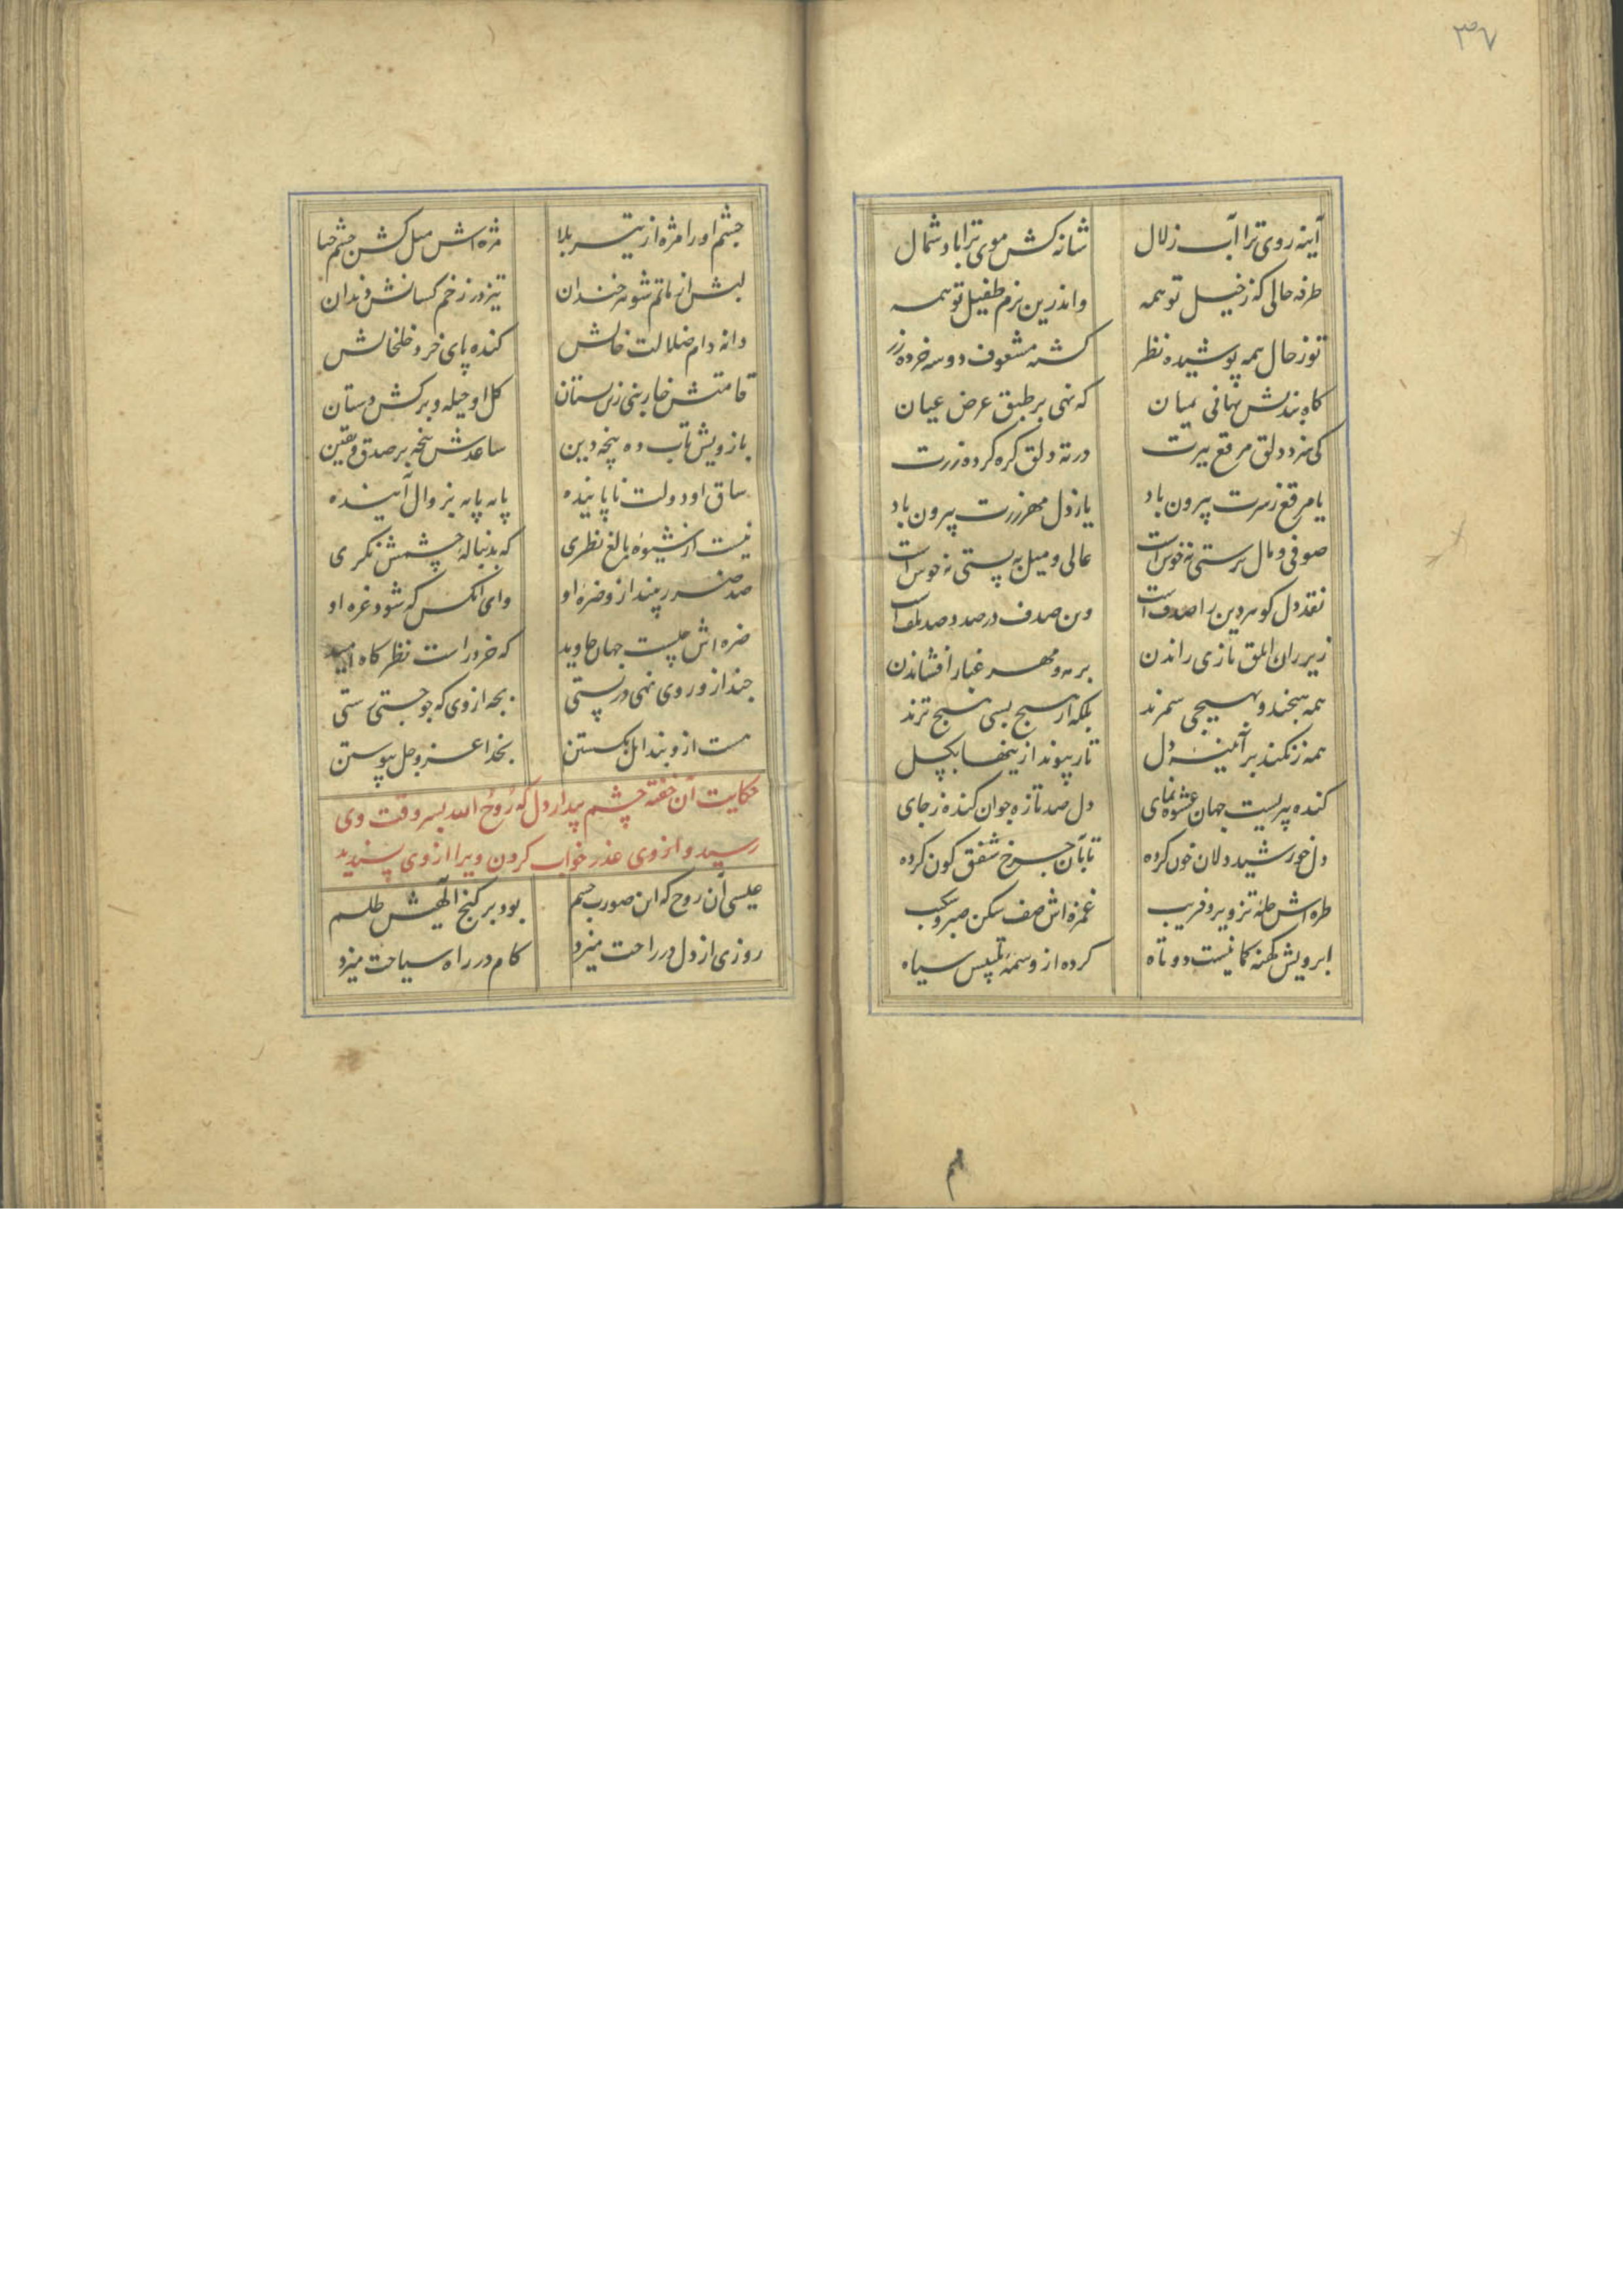 ۳۷
آینه روی ترا آب زلال شانه کش موی ترا باد شمال
طرفه حالی که ز خیل تو همه واندرین بزم طفیل تو همه
تو ز حال همه پوشیده نظر کشته مشعوف دو سه خرده زر
کاه بندیش نهانی بمیان که نهی بر طبق عرض عیان
کی سزد دلق مرقع ببرت در ته دلق کره کرده زرت
یا مرقع ز سرت بیرون باد یا ز دل مهر زرت بیرون باد
صوفی و مال پرستی نه خوش است عالی و میل به پستی نه خوش است
نقد دل کوهر دین را صدف است وین صدف در صدد صد تلف است
زیر ران ابلق تازی راندن بر مه و مهر غبار افشاندن
همه هیچند و بهیچی سمرند بلکه از هیچ بسی هیچ ترند
همه زنکند بر آئینهٔ دل تار پیوند ازینها بکسل
کنده پیریست جهان عشوه نمای دل صد تازه جوان کنده ز جای
دل خورشید دلان خون کرده تا بآن چرخ شفق کون کرده
طره اش حلهٔ تزویر و فریب غمزه اش صف شکن صبر و شکیب
ابرویش کهنه کمانیست دو تاه کرده از وسمهٔ تلبیس سیاه
چشم او را مژه از تیر بلا مژه اش میل کش چشم حیا
لبش از ماتم شو نه خندان تیز در زخم کسانش دندان
دانه دام ضلالت خالش کنده پای خرد خلخالش
قامتش خاربنی زین بستان کل او حیله و برکش دستان
بازویش تاب ده پنجه دین ساعدش پنجه بر صدق و یقین
ساق او دولت ناپاینده پایه پایه بزوال آینده
نیست از شیوهٔ بالغ نظری که بدنبالهٔ چشمش نکری
صد ضرر بیند ازو ضرهٔ او وای آنکس که شود غره او
ضره اش چیست جهان جاوید که خرد راست نظر کاه امید
چند ازو روی نهی در پستی بجه از وی که چو جستی رستی
هست ازو بند امل بکسستن بخدا عز و جل پیوستن
حکایت آن خفته چشم بیدار دل که روح الله بسر وقت وی
رسید و از وی عذر خواب کردن ویرا از وی پسندید
عیسی آن روح که این صورت جسم بود بر کنج الهیش طلسم
روزی از دل در راحت میزد کام در راه سیاحت میزد